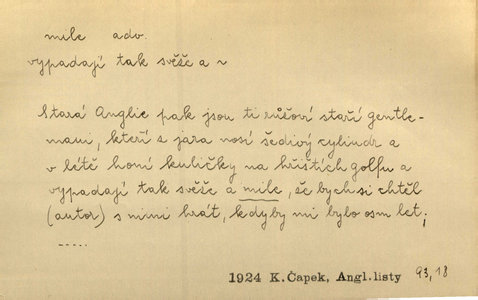 mile adv.
vypadají tak svěže a ~
Stará Anglie pak jsou ti růžoví staří gentle-
mani, kteří z jara nosí šedivý cylindr a
v létě honí kuličky na hřištích golfu a
vypadají tak svěže a mile, že bych si chtěl
(autor) s nimi hrát, kdyby mi bylo osm let;
.....
1924 K.Čapek, Angl.listy 93,18